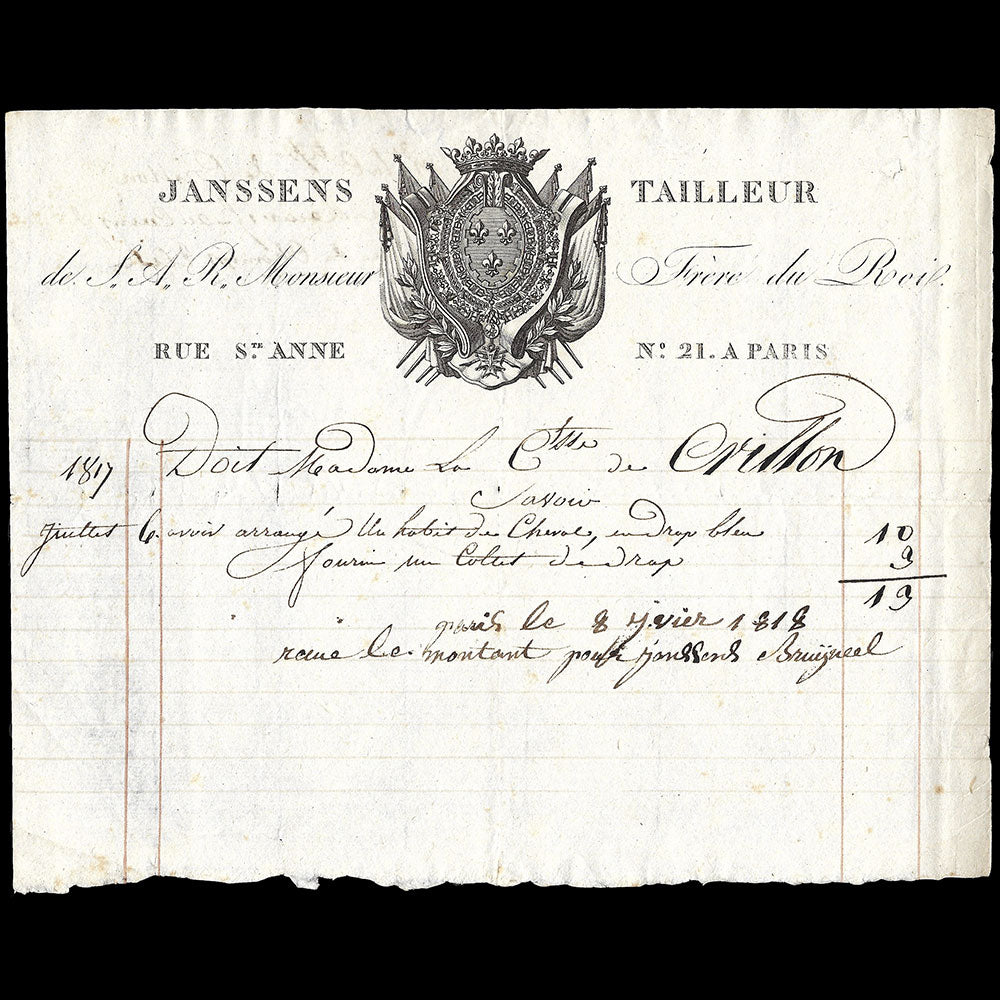 JANSSENS TAILLEUR
de S. A. R. Monsieur Frère du Roi.
RUE S.TE ANNE N.o 21. A PARIS
1817 Doit Madame La Ctsse de Crillon
Savoir
Juillet 6. avoir arrangé Un habit de Cheval, en drap bleu 10
fourni un Collet de drap 3
13
paris le 8 jvier 1818
recue le montant pour janssens Bruijneel